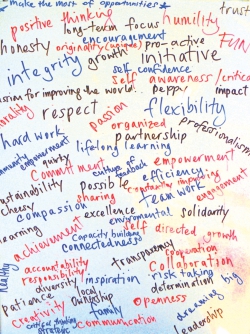 make the most of opportunities
trust
positive thinking
humility
long-term focus
encouragement
honesty
originality (unique)
pro-active
FUN
integrity
growth
initiative
self confidence
self awareness / critical
passion for improving the world...
peppy
impact
respect
flexibility
passion
organized
professionalism
hard work
partnership
lifelong learning
empowerment
quirky
culture of feedback
empowerment
commitment
efficiency
sustainability
possible
constantly improving
engagement
cheesy
sharing
team work
compassion
excellence
enviromental
solidarity
learning
achievement
self directed
growth
capacity building
connectedness
transparency
cooperation
healthy
accountability
collaboration
responsibility
risk taking
diversity
inspiration
determination
big
patience
local ownership
openness
dreaming
creativity
family
critical thinking
communication
leadership
strategic